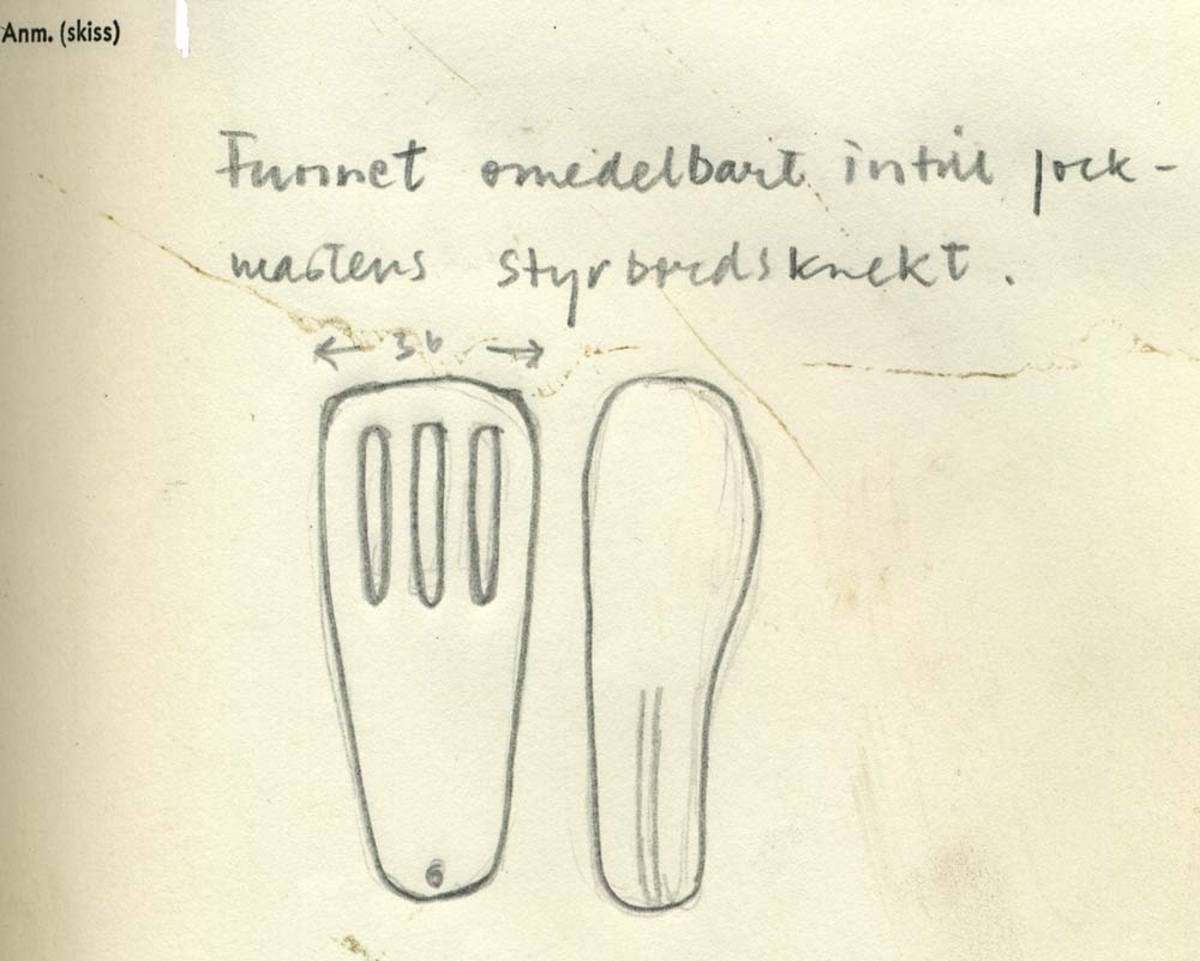 Anm. (skiss)
Funnet omedelbart intill fock-
mastens styrbordsknekt.
← 36 →